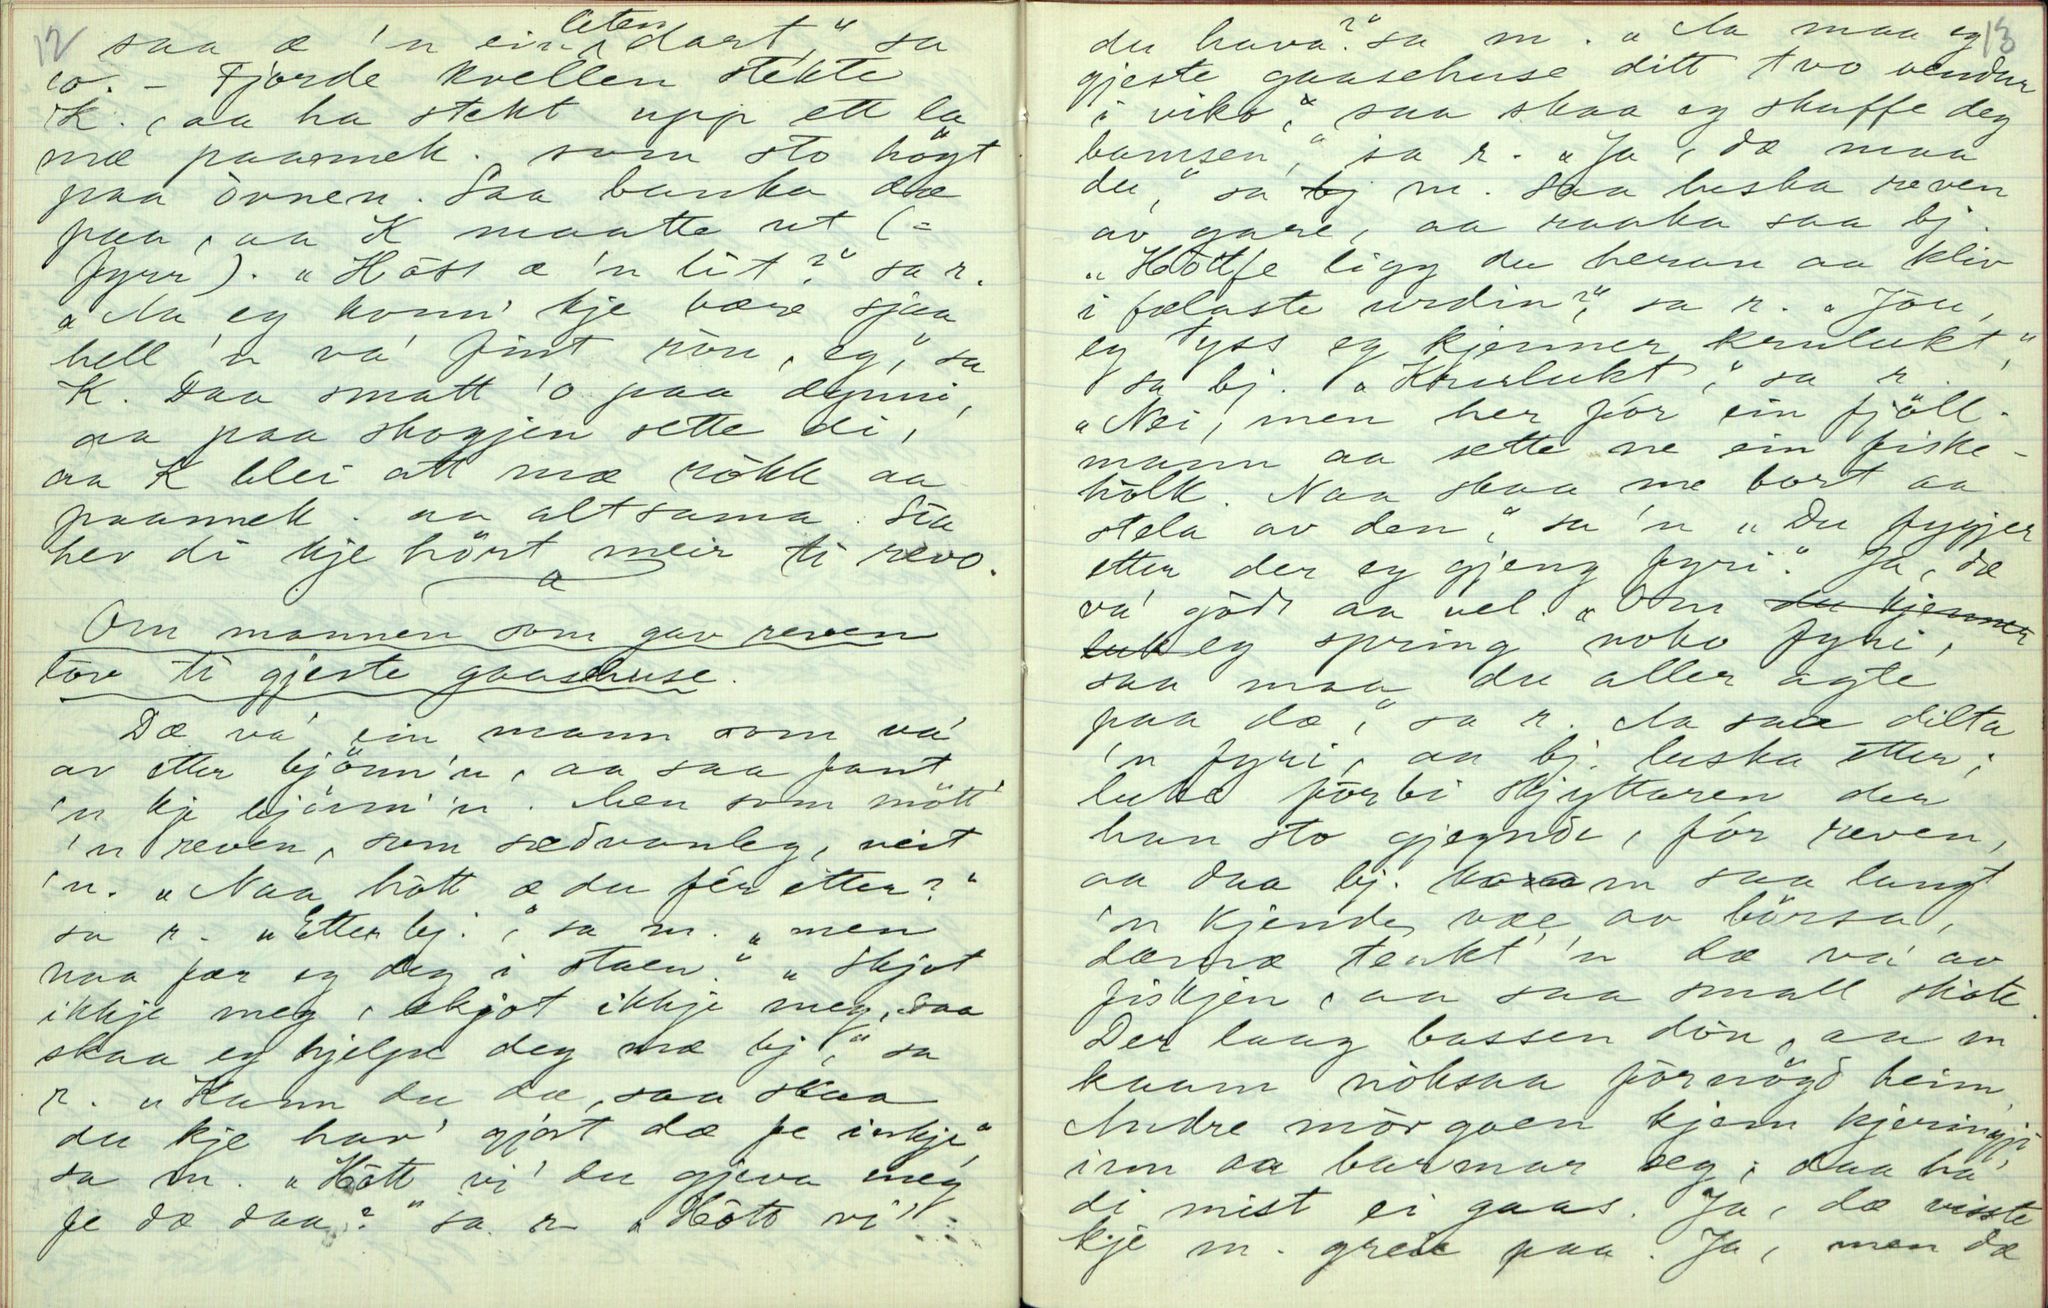 12
saa æ 'n ein liten dart," sa
o. – Fjorde kvellen stekte
K., aa ha stekt upp ett la
mæ paannek. som sto högt
paa ovnen. Saa banka dæ
paa, aa K maatte ut (=
fyrr). "Höss æ 'n lit?" sa r.
"Aa eg konn' kje være sjaa
hell 'n va' fint röu, eg," sa
K. Daa smatt 'o paa dynni,
aa paa skogjen sette di,
aa K blei att mæ rökk aa
paannek. aa altsama. Sia
hev di kje hört meir ti revo.
Om mannen som gav reven
lov ti gjeste gaasehuse.
Dæ va' ein mann som va'
av etter björnn'n, aa saa fant
'n kje björnn'n. Men som mött'
'n reven, som sædvanleg, veit
'n. "Naa hött æ du fér etter?"
sa r. "Etter bj.", sa m. "men
naa fær eg deg i staen." "Skjot
ikkje meg, skjot ikkje meg, saa
skaa eg hjelpe deg mæ bj," sa
r. "Kann du dæ, saa skaa
du kje hav' gjort dæ fe inkje,"
sa m. "Hött vi' du gjeva meg
fe dæ daa?" sa r. "Hött vi'
13
du hava?" sa m. "Aa maa eg
gjeste gaasehuse ditt tvo vendur
i viko, saa skaa eg skaffe deg
bamsen," sa r. "Ja, dæ maa
du," sa bj m. Saa luska reven
av gare, aa raaka saa bj.
"Höttfe ligg du heran aa kliv
i fælaste urdin?", sa r. "Jöu,
eg tyss eg kjenner krulukt,"
sa bj. "Krurlukt," sa r.
"Nei, men her för ein fjöll-
mann aa sette ne ein fiske-
hölk. Naa skaa me bort aa
stela av den," sa 'n "Du fygjer
etter der eg gjeng fyri." Ja, dæ
va' gödt aa vel. "Om du kjenner
luk eg spring noko fyri,
saa maa du aller agte
paa dæ," sa r. Aa saa dilta
'n fyri, aa bj. luska etter;
luke förbi skjyttaren der
han sto gjegnde, för reven,
aa daa bj. kaam saa langt
'n kjende væe av börsa,
dærmæ tenkt' 'n dæ va' av
fiskjen, aa saa small skote.
Der laag bassen döu, aa m
kaam nöksaa förnögd heim.
Andre mörgoen kjem kjeringji
inn aa barmar seg; daa ha
di mist ei gaas. Ja, dæ visste
kje m. greie paa. Ja, men dæ